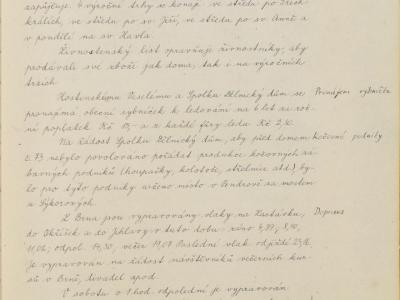 zapůjčuje. 4 výroční trhy se konají ve středu po Třech
králích, ve středu po sv. Jiří, ve středu po sv. Anně a
v pondělí na sv. Havla.
Živnostenský list opravňuje živnostníky, aby
prodávali své zboží jak doma, tak i na výročních
trzích.
Hostinskému Veselému a Spolku Dělnický dům se Pronájem rybníčku
pronajímá obecní rybníček k ledování na 6 let za roč
ní poplatek Kč a z každé fůry ledu Kč
Na žádost Spolku Dělnický dům, aby před domem Kočovné podniky
č. 73 nebylo povolováno pořádat produkce kočovných zá
bavných podniků (houpačky, kolotoče, střelnice atd.) by
lo pro tyto podniky určeno místo v Pendrově za mostem
u Sýkorových.
Z Brna jsou vypravovány vlaky na Zastávku, Doprava
do Okříšek a do Jihlavy v tuto dobu: ráno
odpol. 14,30, večer Poslední vlak odjíždí
Je vypravován na žádost návštěvníků večerních kur
sů v Brně, divadel apod.
V sobotu o 1 hod. odpolední je vypravován